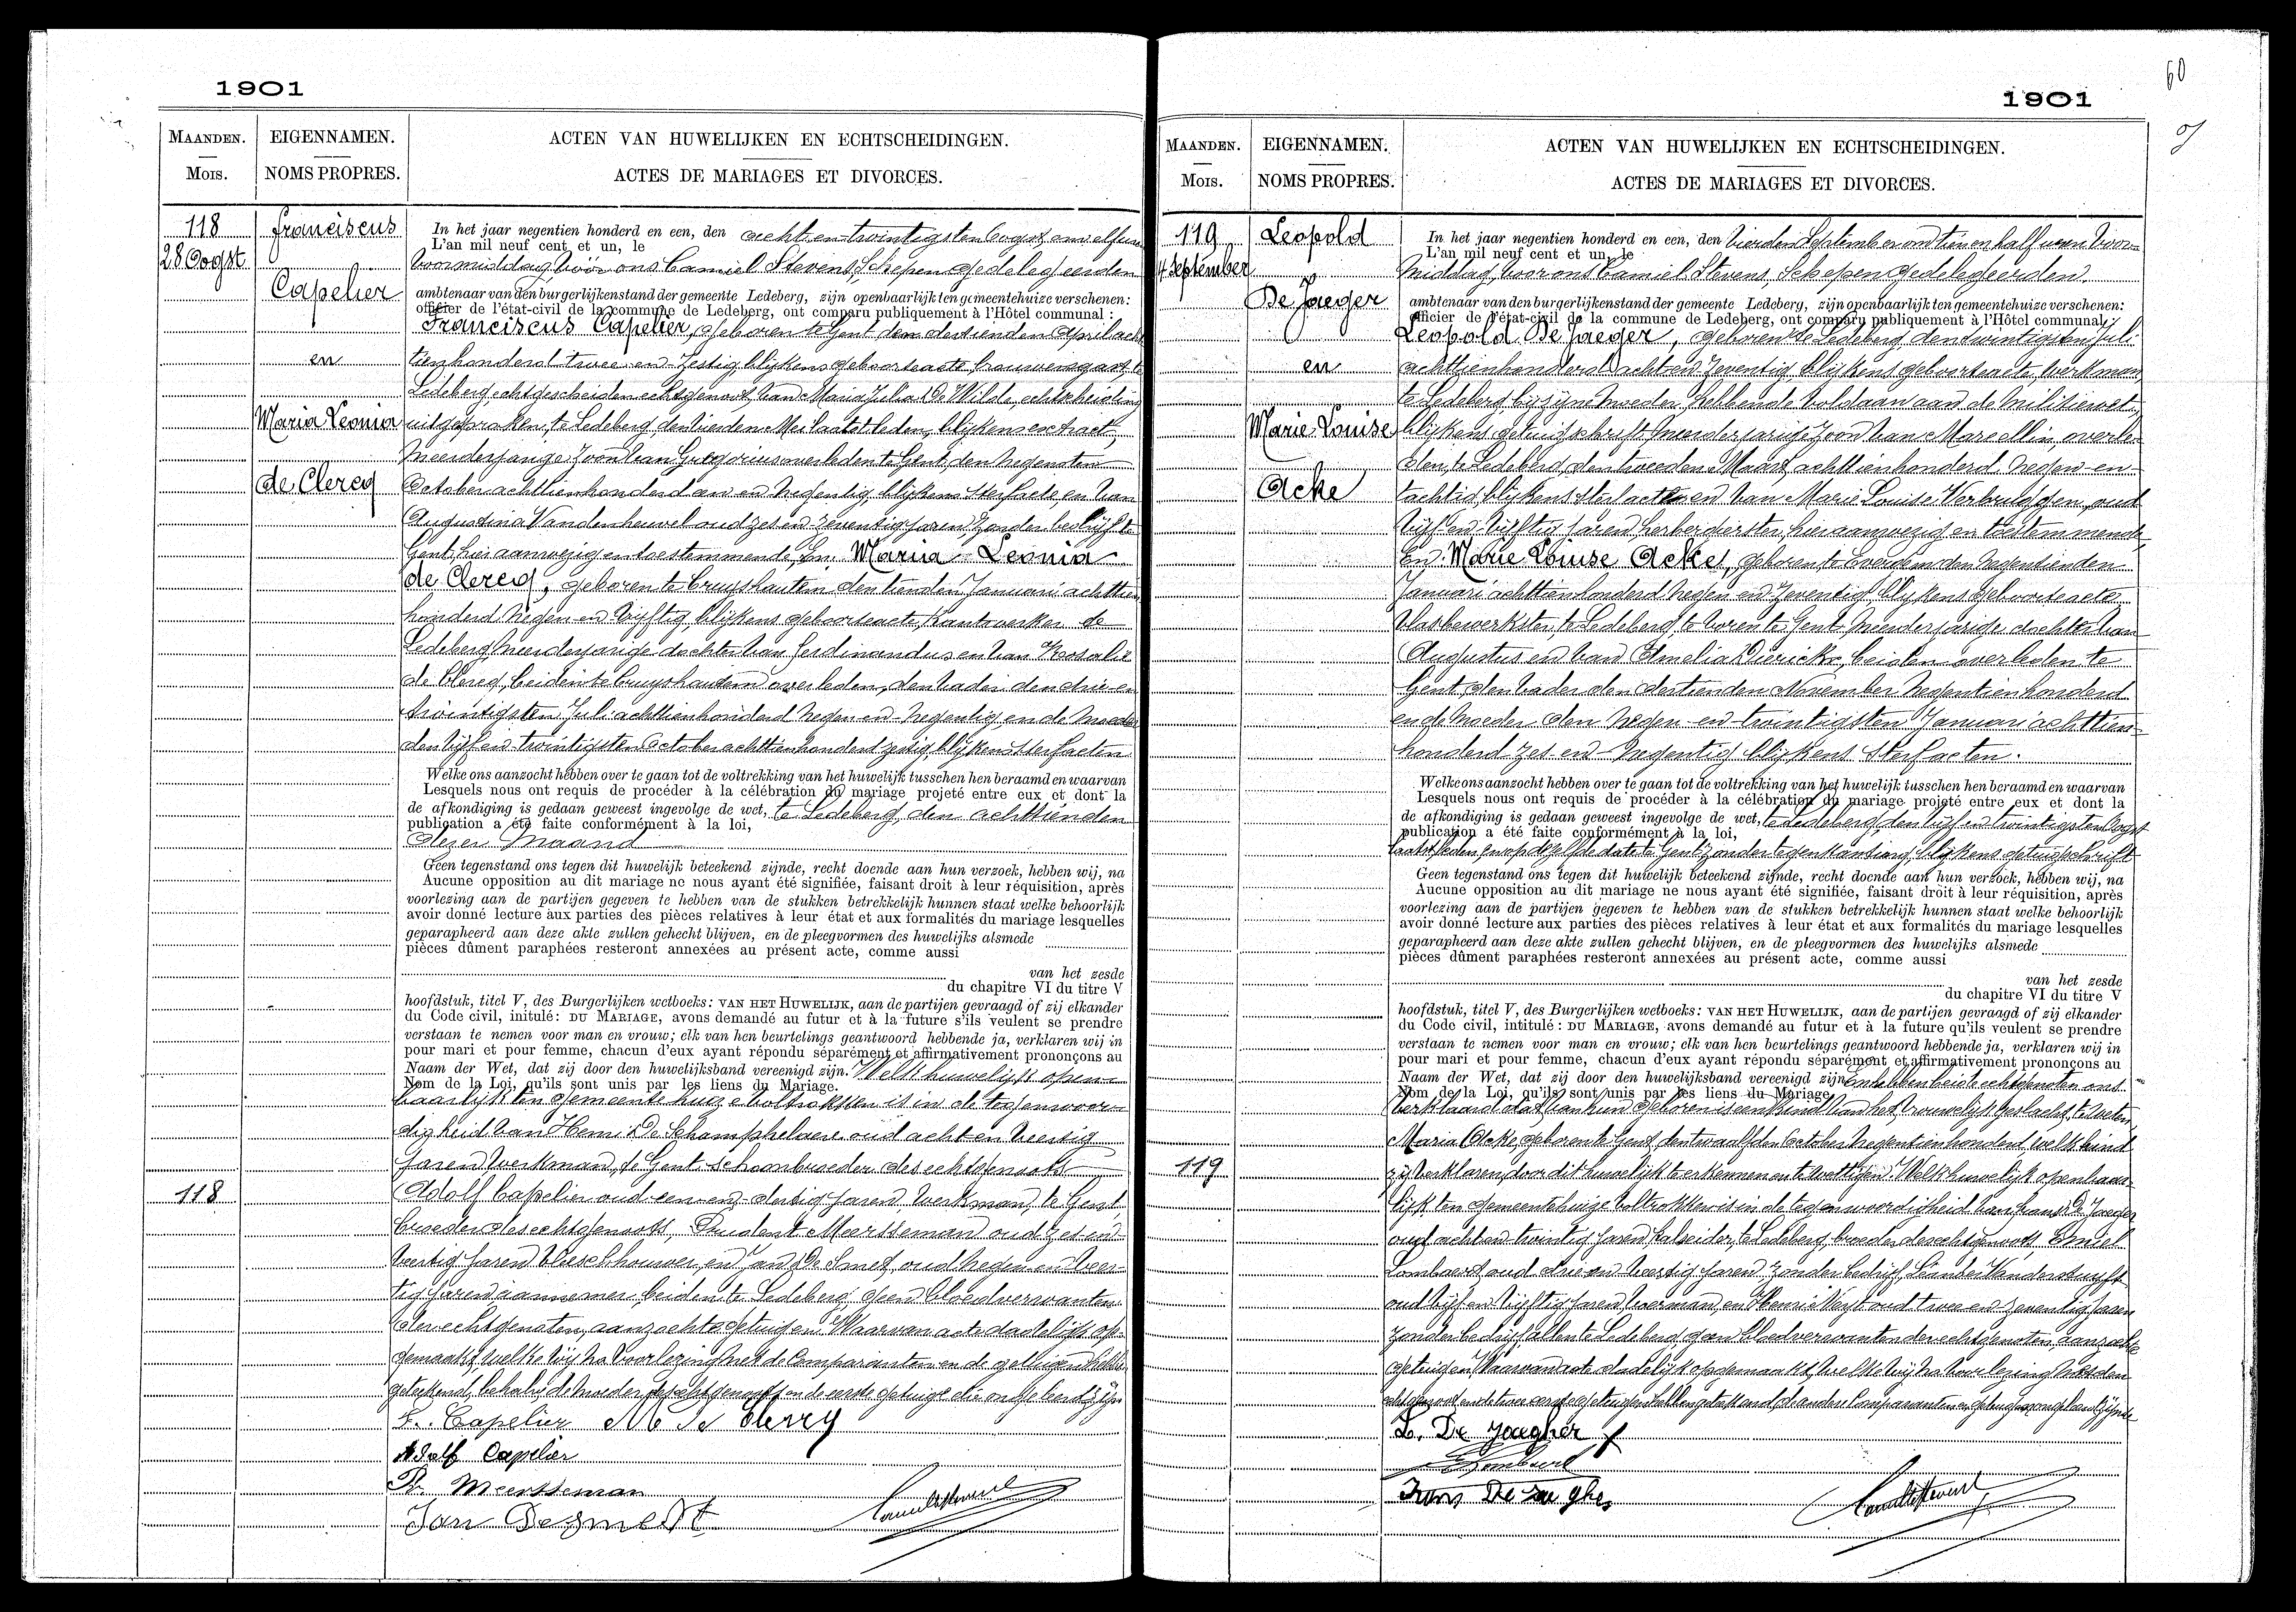 1901
MAANDEN.
Mois.
EIGENNAMEN.
NOMS PROPRES.
ACTEN VAN HUWELIJKEN EN ECHTSCHEIDINGEN.
ACTES DE MARIAGES ET DIVORCES.
118
28 Oogst
Franciscus
Capelier
en
Maria Leonia
de Clercq
In het jaar negentien honderd en een, den acht en twintigsten Oogst, om elf uren
L'an mil neuf cent et un, le
voormiddag, vóór ons Camiel Stevens, Schepen gedelegeerden
ambtenaar van den burgerlijken stand der gemeente Ledeberg, zijn openbaarlijk ten gemeentehuize verschenen:
officier de l'état-civil de la commune de Ledeberg, ont comparu publiquement à l'Hôtel communal :
Franciscus Capelier, geboren te Gent den dertienden April acht
tienhonderd twee en zestig, blijkens geboorteacte, te
Ledeberg, echtgescheiden echtgenoot van Maria Julia De Wilde, echtscheiding
uitgesproken te Ledeberg, den vierden Mei laatstleden, blijkens extract,
meerderjarige zoon van Gregorius overleden te Gent, den negensten
October achttienhonderd een en negentig, blijkens sterfacte, en van
Augustina Vandenheuvel oud zes en zeventig jaren, zonder bedrijf te
Gent, hier aanwezig en toestemmende, En Maria Leonia
de Clercq, geboren te Cruyshautem den tienden Januari achttien
honderd negen en vijftig, blijkens geboorteacte, kantwerker te
Ledeberg, meerderjarige dochter van Ferdinandus en van Rosalie
de Clercq, beiden te Cruyshautem overleden, den vader den drie en
twintigsten Juli achttienhonderd negen en negentig, en de moeder
den vijf en twintigsten October achttienhonderd zestig, blijkens sterfacten.
Welke ons aanzocht hebben over te gaan tot de voltrekking van het huwelijk tusschen hen beraamd en waarvan
Lesquels nous ont requis de procéder à la célébration du mariage projeté entre eux et dont la
de afkondiging is gedaan geweest ingevolge de wet, te Ledeberg, den achttienden
publication a été faite conformément à la loi,
dezer maand
Geen tegenstand ons tegen dit huwelijk beteekend zijnde, recht doende aan hun verzoek, hebben wij, na
Aucune opposition au dit mariage ne nous ayant été signifiée, faisant droit à leur réquisition, après
voorlezing aan de partijen gegeven te hebben van de stukken betrekkelijk hunnen staat welke behoorlijk
avoir donné lecture aux parties des pièces relatives à leur état et aux formalités du mariage lesquelles
geparapheerd aan deze akte zullen gehecht blijven, en de pleegvormen des huwelijks alsmede
pièces dûment paraphées resteront annexées au présent acte, comme aussi
van het zesde
du chapitre VI du titre V
hoofdstuk, titel V, des Burgerlijken wetboeks: VAN HET HUWELIJK, aan de partijen gevraagd of zij elkander
du Code civil, initulé: DU MARIAGE, avons demandé au futur et à la future s'ils veulent se prendre
verstaan te nemen voor man en vrouw; elk van hen beurtelings geantwoord hebbende ja, verklaren wij in
pour mari et pour femme, chacun d'eux ayant répondu séparément et affirmativement prononçons au
Naam der Wet, dat zij door den huwelijksband vereenigd zijn. Welk huwelijk open-
Nom de la Loi, qu'ils sont unis par les liens du Mariage.
baarlijk ten gemeentehuize voltrokken is in de tegenwoor-
digheid van Henri De Schamphelaere oud acht en veertig
jaren, werkman, te Gent, schoonbroeder des echtgenoots
118
Adolf Capelier oud een en dertig jaren, werkman, te Gent
broeder des echtgenoots, Prudent Meersseman oud zes en
veertig jaren, vleeschhouwer, en Jan De Smet, oud negen en veer-
tig jaren aannemer, beiden te Ledeberg, geen bloedverwanten
der echtgenoten, aanzochte getuigen. Waarvan acte dadelijk op-
gemaakt, welke wij na voorlezing met de Comparanten en de getuigen hebben
geteekend, behalve de moeder des echtgenoots en de eerste getuige die ongeleerd zijn
F. Capelier M de Clercq
Adolf Capelier
P. Meersseman
Jan Desmedt
1901
60
MAANDEN.
Mois.
EIGENNAMEN.
NOMS PROPRES.
ACTEN VAN HUWELIJKEN EN ECHTSCHEIDINGEN.
ACTES DE MARIAGES ET DIVORCES.
119
4 September
Leopold
De Jaeger
en
Marie Louise
Acke
In het jaar negentien honderd en een, den vierden September om tien en half uren voor-
L'an mil neuf cent et un, le
middag, voor ons Camiel Stevens, Schepen gedelegeerden
ambtenaar van den burgerlijken stand der gemeente Ledeberg, zijn openbaarlijk ten gemeentehuize verschenen:
officier de l'état-civil de la commune de Ledeberg, ont comparu publiquement à l'Hôtel communal,
Leopold De Jaeger, geboren te Ledeberg, den twintigsten Juli
achttienhonderd acht en zeventig, blijkens geboorteacte, werkman
te Ledeberg bij zijne moeder, hebbende voldaan aan de militiewet,
blijkens getuigschrift, meerderjarige zoon van Marcellin, overle-
den, te Ledeberg, den tweeden Maart achttienhonderd negen en
tachtig, blijkens sterfacte en van Marie Louise Verbrugghen, oud
vijf en vijftig jaren, herbergierster, hier aanwezig en toestemmende,
En Marie Louise Acke, geboren te Everghem den negentienden
Januari achttienhonderd negen en zeventig, blijkens geboorteacte
vlasbewerkster, te Ledeberg, te voren te Gent, meerderjarige dochter van
Augustus en van Amelia Dierickx, beiden overleden te
Gent, den vader den dertienden November negentienhonderd
en de moeder den negen en twintigsten Januari achttien-
honderd zes en negentig blijkens sterfacten.
Welke ons aanzocht hebben over te gaan tot de voltrekking van het huwelijk tusschen hen beraamd en waarvan
Lesquels nous ont requis de procéder à la célébration du mariage projeté entre eux et dont la
de afkondiging is gedaan geweest ingevolge de wet, te Ledeberg, den vijf en twintigsten Oogst
publication a été faite conformément à la loi,
laatstleden, en op dezelfde date te Gent zonder tegenkanting, blijkens getuigschrift
Geen tegenstand ons tegen dit huwelijk beteekend zijnde, recht doende aan hun verzoek, hebben wij, na
Aucune opposition au dit mariage ne nous ayant été signifiée, faisant droit à leur réquisition, après
voorlezing aan de partijen gegeven te hebben van de stukken betrekkelijk hunnen staat welke behoorlijk
avoir donné lecture aux parties des pièces relatives à leur état et aux formalités du mariage lesquelles
geparapheerd aan deze akte zullen gehecht blijven, en de pleegvormen des huwelijks alsmede
pièces dûment paraphées resteront annexées au présent acte, comme aussi
van het zesde
du chapitre VI du titre V
hoofdstuk, titel V, des Burgerlijken wetboeks: VAN HET HUWELIJK, aan de partijen gevraagd of zij elkander
du Code civil, intitulé: DU MARIAGE, avons demandé au futur et à la future qu'ils veulent se prendre
verstaan te nemen voor man en vrouw; elk van hen beurtelings geantwoord hebbende ja, verklaren wij in
pour mari et pour femme, chacun d'eux ayant répondu séparément et affirmativement prononçons au
Naam der Wet, dat zij door den huwelijksband vereenigd zijn. En hebben beide echtgenoten ons
Nom de la Loi, qu'ils sont unis par les liens du Mariage.
verklaard dat van hun geboren is een kind van het vrouwelijk geslacht, te weten,
Maria Acke, geboren te Gent, den twaalfden October negentienhonderd, welk kind
119
zij verklaren door dit huwelijk te erkennen en te wettigen. Welk huwelijk openbaar-
lijk ten gemeentehuize voltrokken is in de tegenwoordigheid van Frans De Jaeger
oud acht en twintig jaren, kalseider, te Ledeberg, broeder des echtgenoots, Emiel
Lombaert, oud drie en veertig jaren, zonder bedrijf, Leander Vanderstuyft
oud vijf en vijftig jaren, voerman, en Henri Neyt oud twee en zeventig jaren
zonder bedrijf, allen te Ledeberg, geen bloedverwanten der echtgenoten, aanzochte
getuigen. Waarvan acte dadelijk opgemaakt, welke wij na voorlezing met den
echtgenoot en de twee eerste getuigen hebben geteekend, de andere Comparanten en getuigen ongeleerd zijnde
L. De Jaegher
Frans De Jaegher